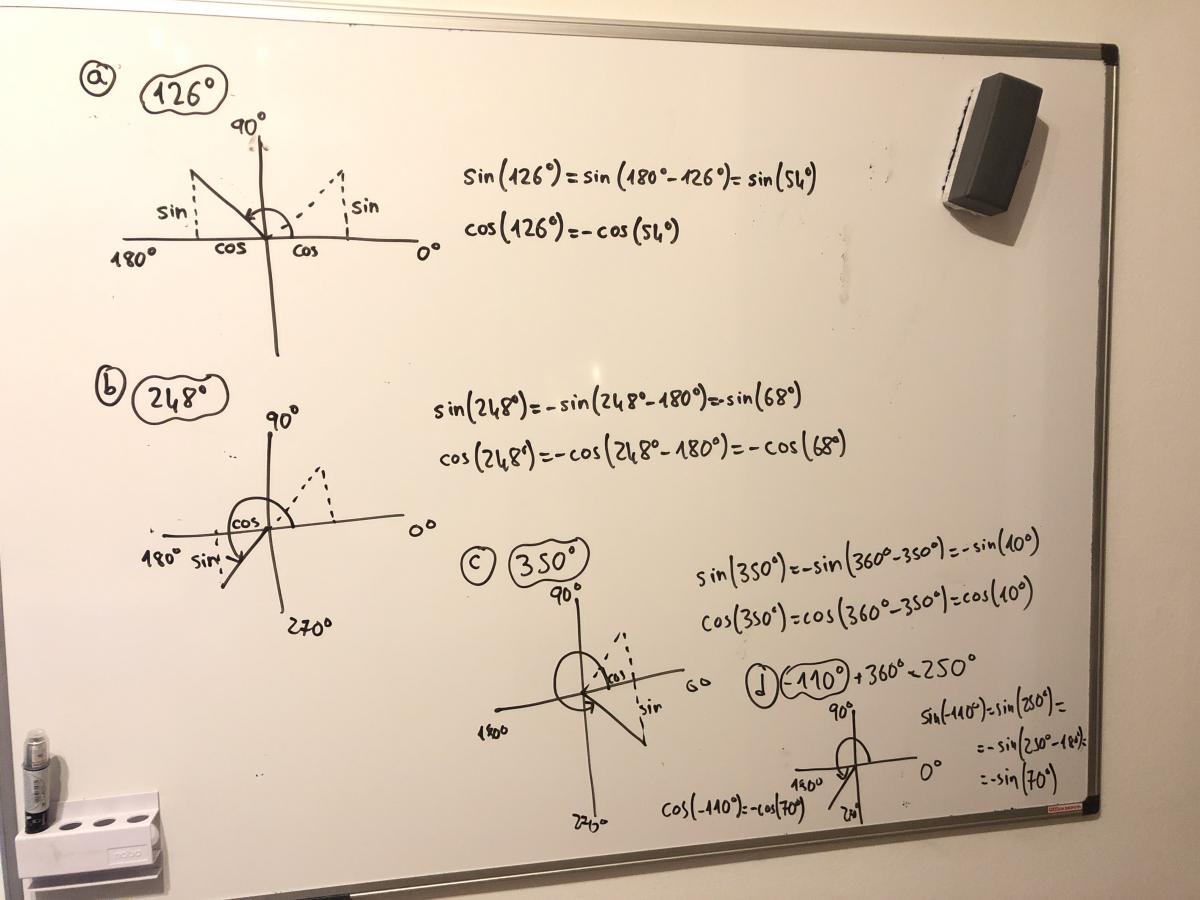 a 126°
90°
sin sin
180° cos cos 0°
sin(126°)=sin(180°-126°)=sin(54°)
cos(126°)=-cos(54°)
b 248°
90°
cos
180° sin 0°
270°
sin(248°)=-sin(248°-180°)=-sin(68°)
cos(248°)=-cos(248°-180°)=-cos(68°)
c 350°
90°
cos
sin
180° 0°
270°
sin(350°)=-sin(360°-350°)=-sin(10°)
cos(350°)=cos(360°-350°)=cos(10°)
d -110° +360°=250°
90°
180° 0°
270°
sin(-110°)=sin(250°)=
=-sin(250°-180°)=
=-sin(70°)
cos(-110°)=-cos(70°)
nobo